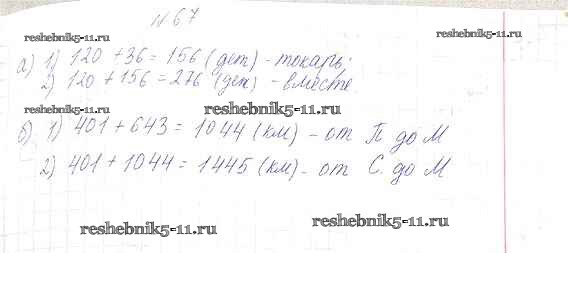 № 67
reshebnik5-11.ru
reshebnik5-11.ru
а) 1) 120 + 36 = 156 (дет) - токарь;
2) 120 + 156 = 276 (дет) - вместе.
reshebnik5-11.ru
reshebnik5-11.ru
б) 1) 401 + 643 = 1044 (км) - от П до М
2) 401 + 1044 = 1445 (км) - от С. до М
reshebnik5-11.ru
reshebnik5-11.ru